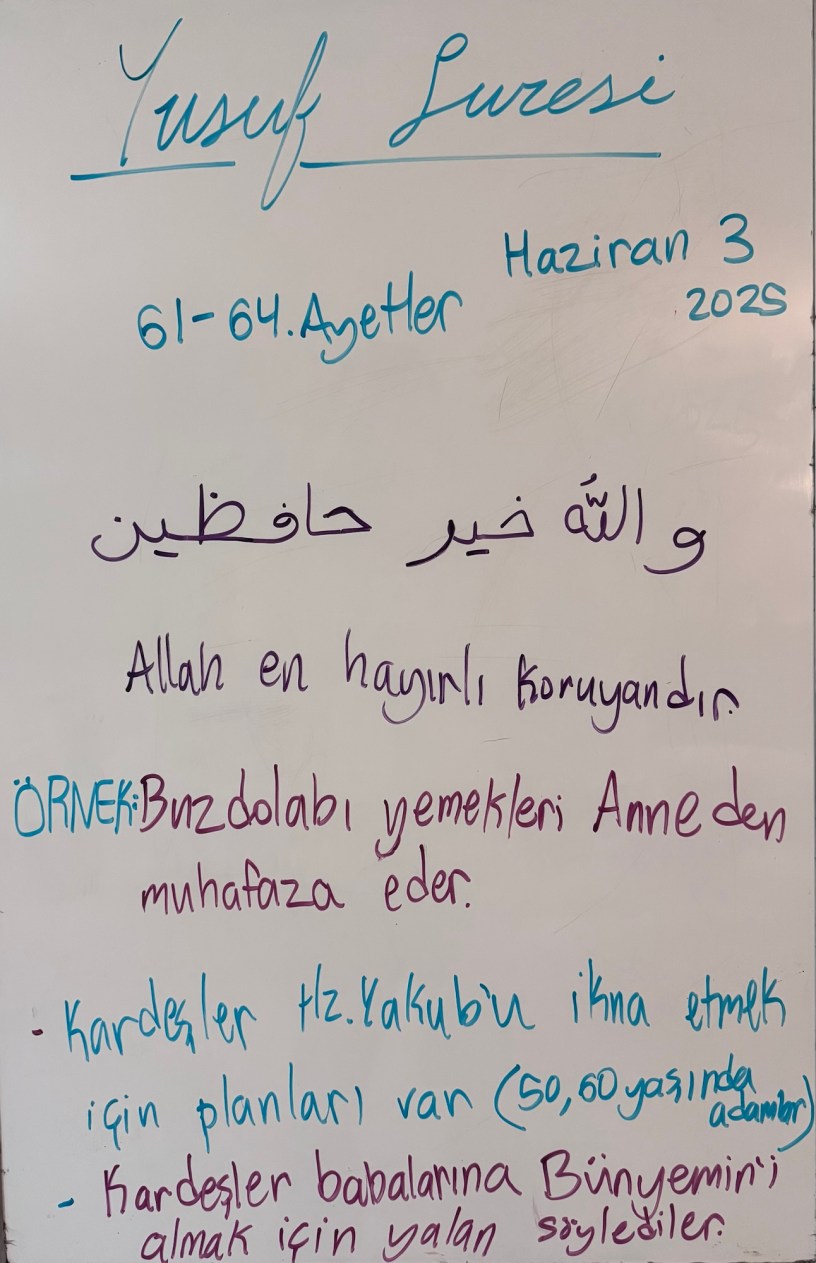 Yusuf Suresi
Haziran 3
2025
61-64. Ayetler
والله خير حافظين
Allah en hayırlı koruyandır.
ÖRNEK: Buzdolabı yemekleri Anneden
muhafaza eder.
- Kardeşler Hz. Yakub'u ikna etmek
için planları var (50, 60 yaşında
adamlar)
- Kardeşler babalarına Bünyemin'i
almak için yalan söylediler.